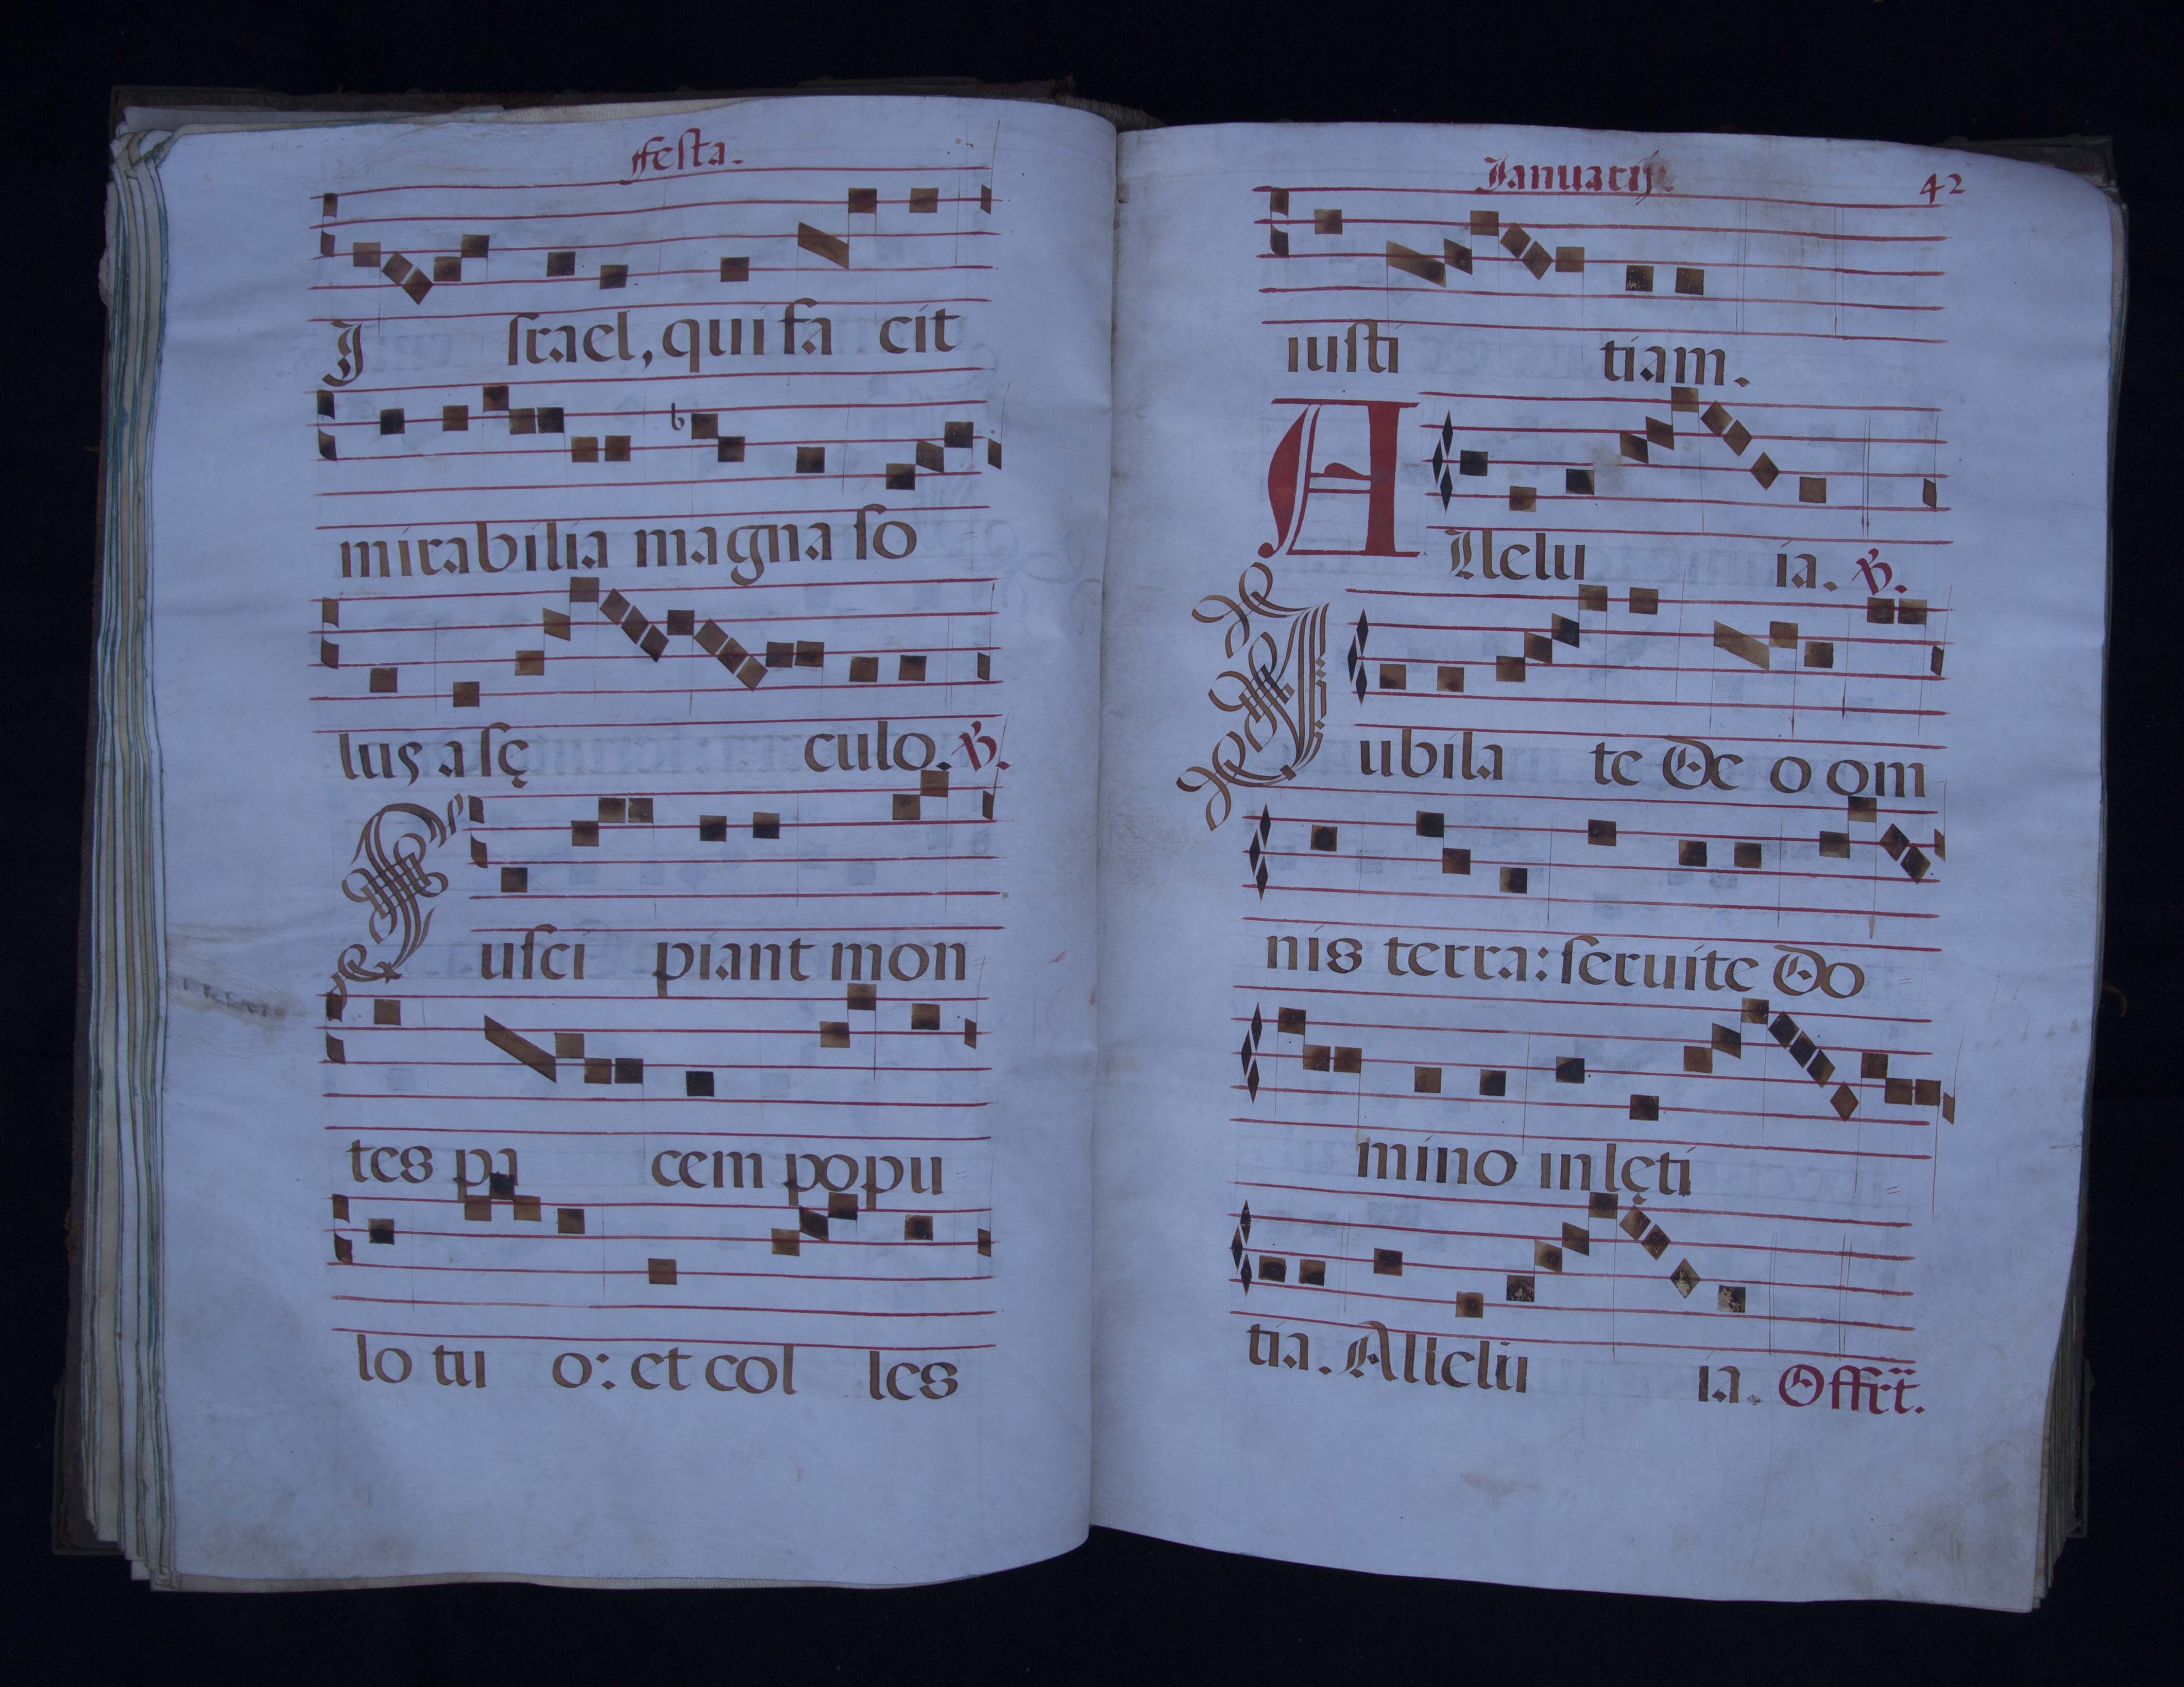 ffesta.
J srael, qui fa cit
mirabilia magna so
lus a sę culo. ℣.
Susci piant mon
tes pa cem popu
lo tu o: et col les
Ianuarij
42
iusti tiam.
Allelu ia. ℣.
Jubila te De o om
nis terra: seruite Do
mino in lęti
tia. Allelu ia. Offrt.